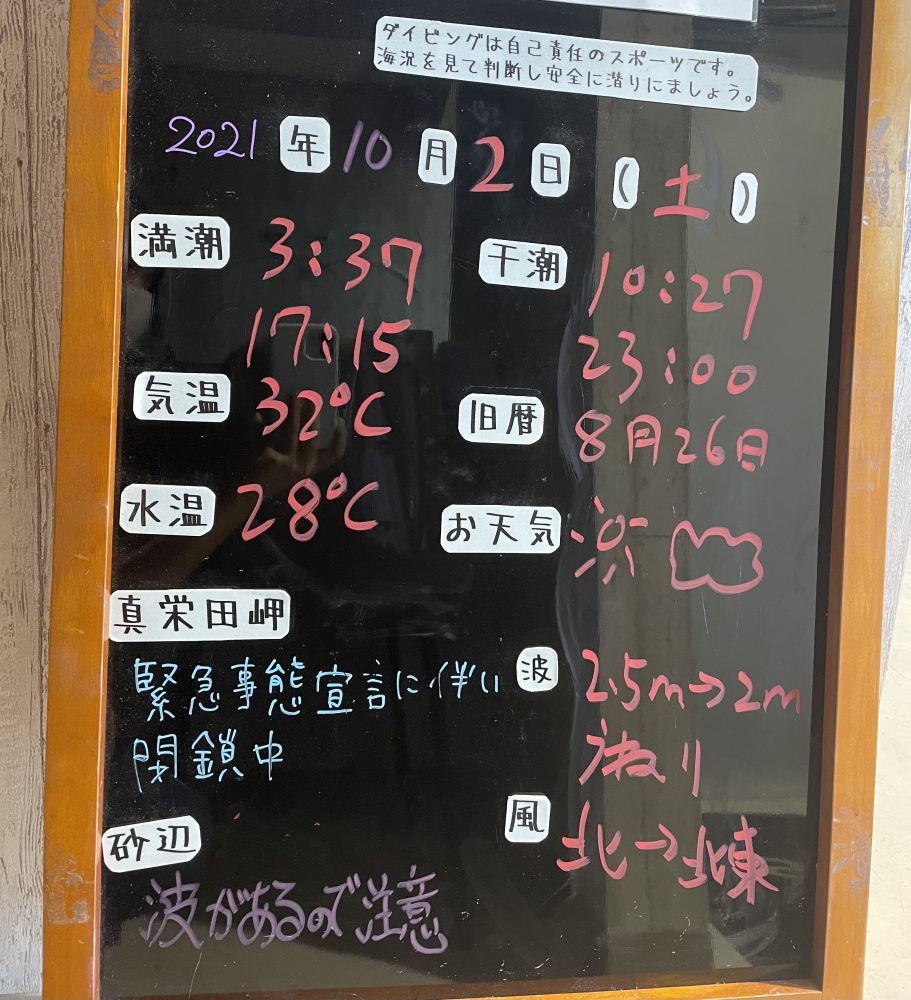 ダイビングは自己責任のスポーツです。
海況を見て判断し安全に潜りにましょう。
2021年10月2日(土)
満潮 3:37 干潮 10:27
17:15 23:00
気温 32℃ 旧暦 8月26日
水温 28℃ お天気
真栄田岬
緊急事態宣言に伴い
閉鎖中
波 2.5m→2m
うねり
風 北→北東
砂辺
波があるので注意